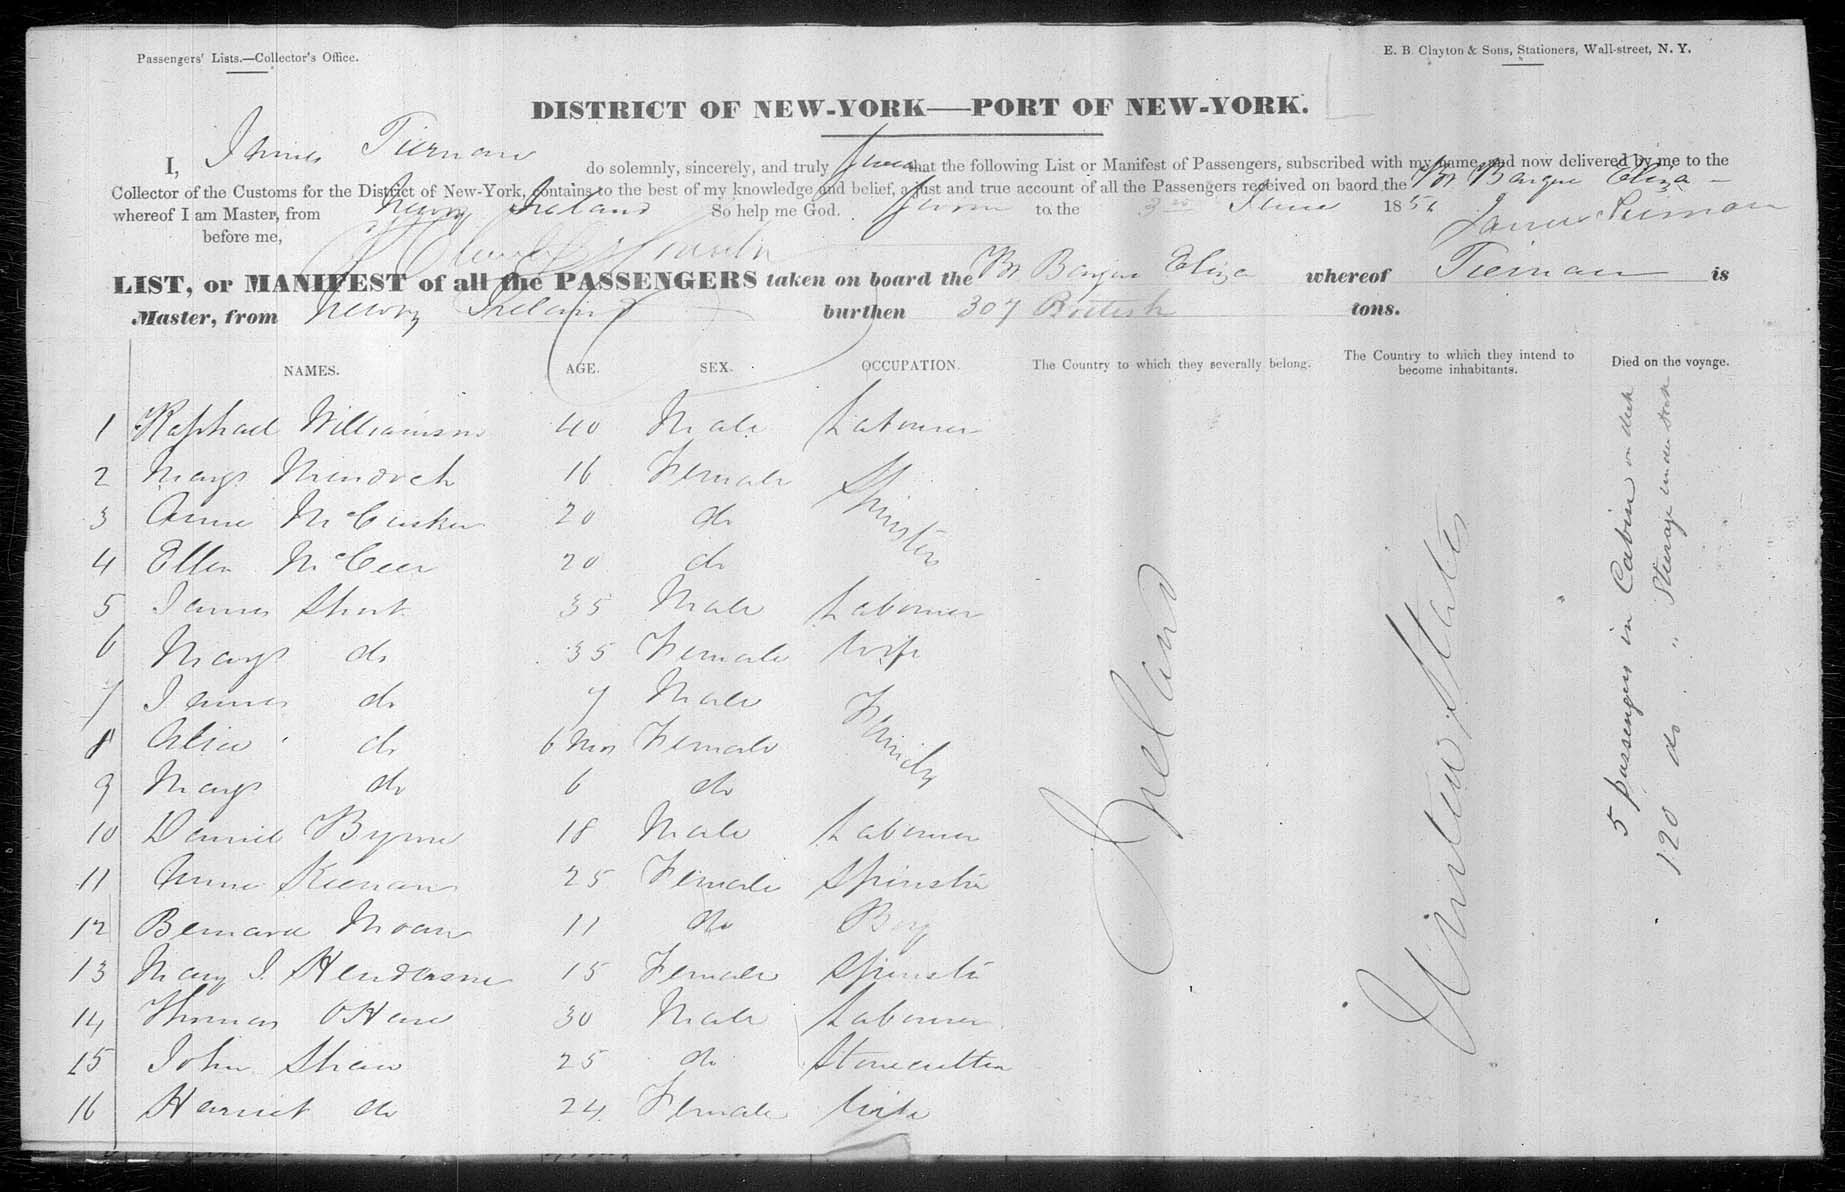 Passengers' Lists.—Collector's Office.
E. B. Clayton & Sons, Stationers, Wall-street, N. Y.
DISTRICT OF NEW-YORK—PORT OF NEW-YORK.
I, James Tiernan do solemnly, sincerely, and truly swear that the following List or Manifest of Passengers, subscribed with my name, and now delivered by me to the
Collector of the Customs for the District of New-York, contains to the best of my knowledge and belief, a just and true account of all the Passengers received on baord the Br Barque Eliza
whereof I am Master, from Newry Ireland So help me God. Sworn to the 3 June 185
before me, James Tiernan
LIST, or MANIFEST of all the PASSENGERS taken on board the Br Barque Eliza whereof Tiernan is
Master, from Newry Ireland burthen 307 British tons.
NAMES. AGE. SEX. OCCUPATION. The Country to which they severally belong. The Country to which they intend to become inhabitants. Died on the voyage.
1 Raphael Williamson 40 Male Labourer
2 Mary Murdock 16 Female Spinster
3 Anne McCusker 20 do
4 Ellen McGeer 20 do
5 James Short 35 Male Labourer
6 Mary do 35 Female Wife
7 James do 7 Male Family
8 Alice do 6 Mos Female
9 Mary do 6 do
10 Daniel Byrne 18 Male Labourer
11 Anne Keenan 25 Female Spinstr
12 Bernard Moan 11 do Boy
13 Mary J. Henderson 15 Female Spinstr
14 Thomas OHare 30 Male Labourer
15 John Shaw 25 do Stonecutter
16 Harriet do 24 Female Wife
Ireland
United States
5 passengers in Cabin on deck
120 do " Steerage under deck